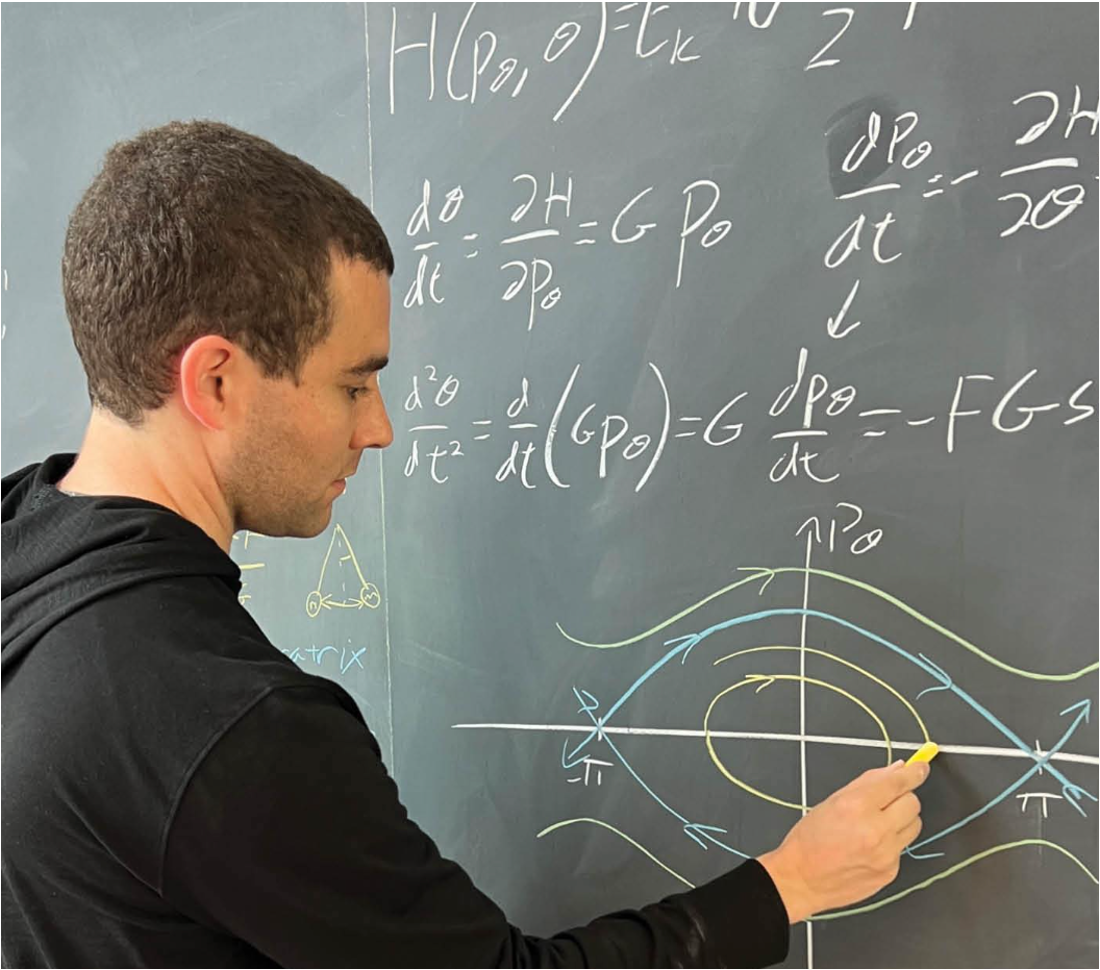 H(pθ, θ) = Ek
2
dθ/dt = ∂H/∂pθ = G pθ
dpθ/dt = - ∂H/∂θ
↓
d²θ/dt² = d/dt (Gpθ) = G dpθ/dt = -FGs
Pθ
n
m
atrix
-π
π